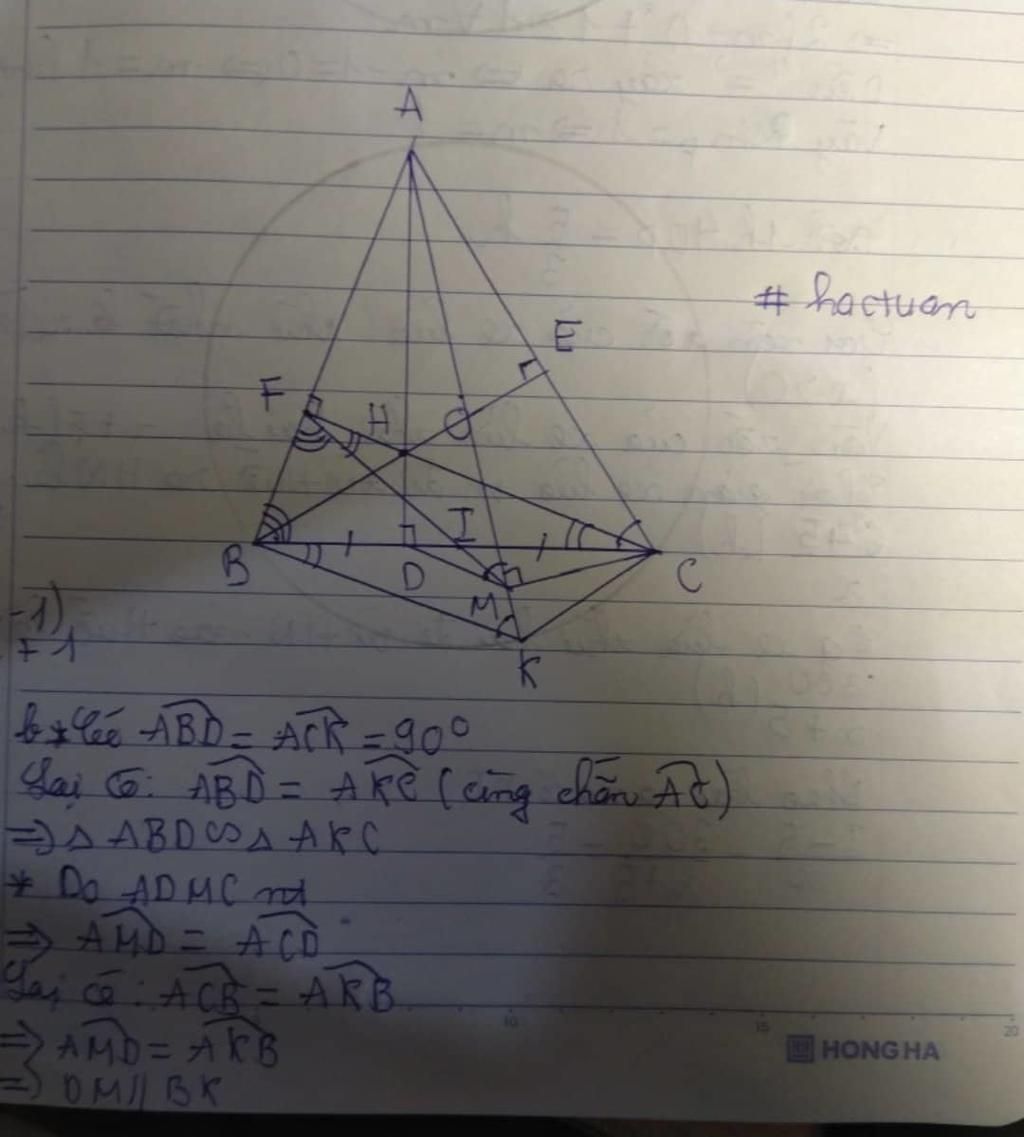 A
E
# hactuan
F
H
I
B
D
C
M
K
-1)
+1
ABD = ACK = 90°
Lại có: ABD = AKC (cùng chắn AC)
=> △ ABD ∽ △ AKC
* Do ADMC nt
=> AMD = ACD
Lại có: ACB = AKB
=> AMD = AKB
=> DM // BK
10
15
20
HONG HA